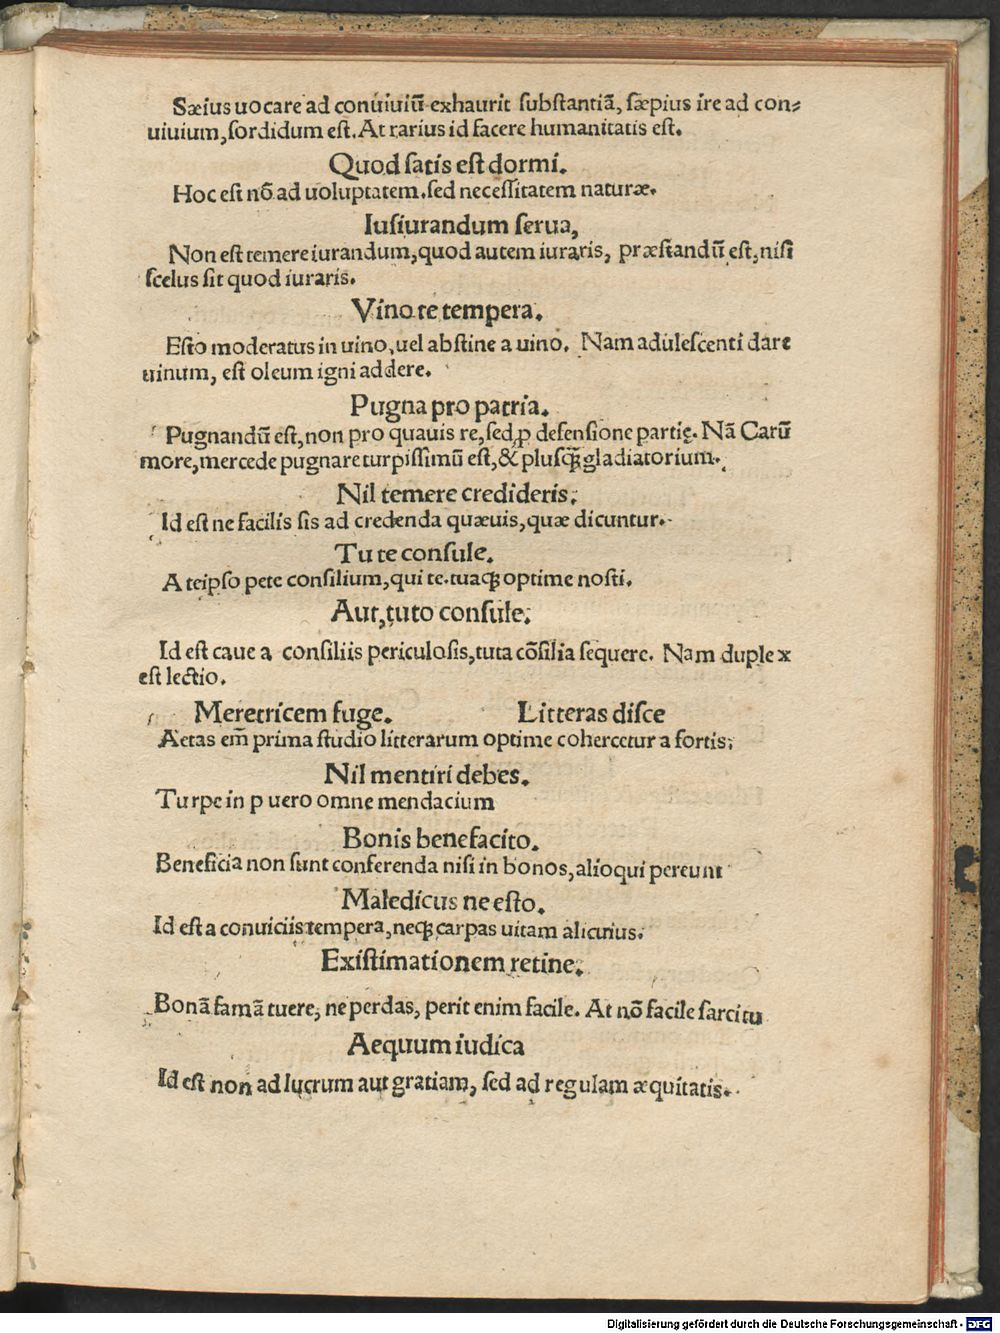 Sæius uocare ad conuiuiū exhaurit substantiā, sæpius ire ad con-
uiuium, sordidum est. At rarius id facere humanitatis est.
Quod satis est dormi.
Hoc est nō ad uoluptatem. sed necessitatem naturæ.
Iusiurandum serua,
Non est temere iurandum, quod autem iuraris, præstandū est, nisi
scelus sit quod iuraris.
Vino te tempera.
Esto moderatus in uino, uel abstine a uino. Nam adulescenti dare
uinum, est oleum igni addere.
Pugna pro patria.
Pugnandū est, non pro quauis re, sed ꝓ defensione partię. Nā Carū
more, mercede pugnare turpissimū est, & plusꝗ̄ gladiatorium.
Nil temere credideris.
Id est ne facilis sis ad credenda quæuis, quæ dicuntur.
Tu te consule.
A teipso pete consilium, qui te. tuaqꝫ optime nosti.
Aut, tuto consule.
Id est caue a consiliis periculosis, tuta cōsilia sequere. Nam duplex
est lectio.
Meretricem fuge. Litteras disce
Aetas em̄ prima studio litterarum optime cohercetur a fortis.
Nil mentiri debes.
Turpe in puero omne mendacium
Bonis benefacito.
Beneficia non sunt conferenda nisi in bonos, alioqui pereunt
Maledicus ne esto.
Id est a conuiciis tempera, neqꝫ carpas uitam alicuius.
Existimationem retine.
Bonā famā tuere, ne perdas, perit enim facile. At nō facile sarcitu
Aequum iudica
Id est non ad lucrum aut gratiam, sed ad regulam æquitatis.
Digitalisierung gefördert durch die Deutsche Forschungsgemeinschaft - DFG